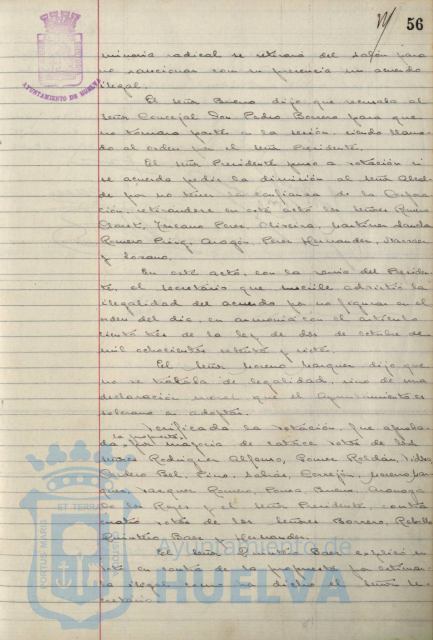 56
AYUNTAMIENTO DE HUELVA
minoria radical se retirará del salón para
no sancionar con su presencia un acuerdo
ilegal.
El señor Bueno dijo que recusaba al
señor Concejal Don Pedro Borrero para que
no tomara parte en la sesión, siendo llama-
do al orden por el Señor Presidente.
El señor Presidente puso a votación si
se acuerda pedir la dimisión al señor Alcal-
de por no tener la confianza de la Corpora-
ción, retirándose en este acto los señores
Tuscano Perez, Oliveira, Martinez
Romero Aragón, Perez Hernandez,
y Lozano.
En este acto, con la venia del Presiden-
te, el Secretario que suscribe advirtió la
ilegalidad del acuerdo por no figurar en el
orden del dia, en armonía con el artículo
ciento tres de la ley de dos de octubre de
mil ochocientos setenta y siete.
El Señor Moreno Marquez dijo que
no se trataba de legalidad, sino de una
declaración moral que el Ayuntamiento es
soberano en adoptar.
Verificada la votación, fue aproba-
da la propuesta por mayoría de catorce votos de los
señores Rodriguez Alfonso, Ponce Roldán,
Cordero Bel, Pino, Terrejón, Moreno Mar-
quez, Vazquez Romero, Bueno,
de los Reyes y el señor Presidente, contra
cuatro votos de los señores Borrero, Rebollo
Quintero Baez y Hernandez.
El señor Quintero Baez explicó su
voto en contra de la propuesta por estimar-
la ilegal como ha dicho el señor Se-
cretario.
ET TERRAE
PORTUS MARIS
Ayuntamiento de
HUELVA